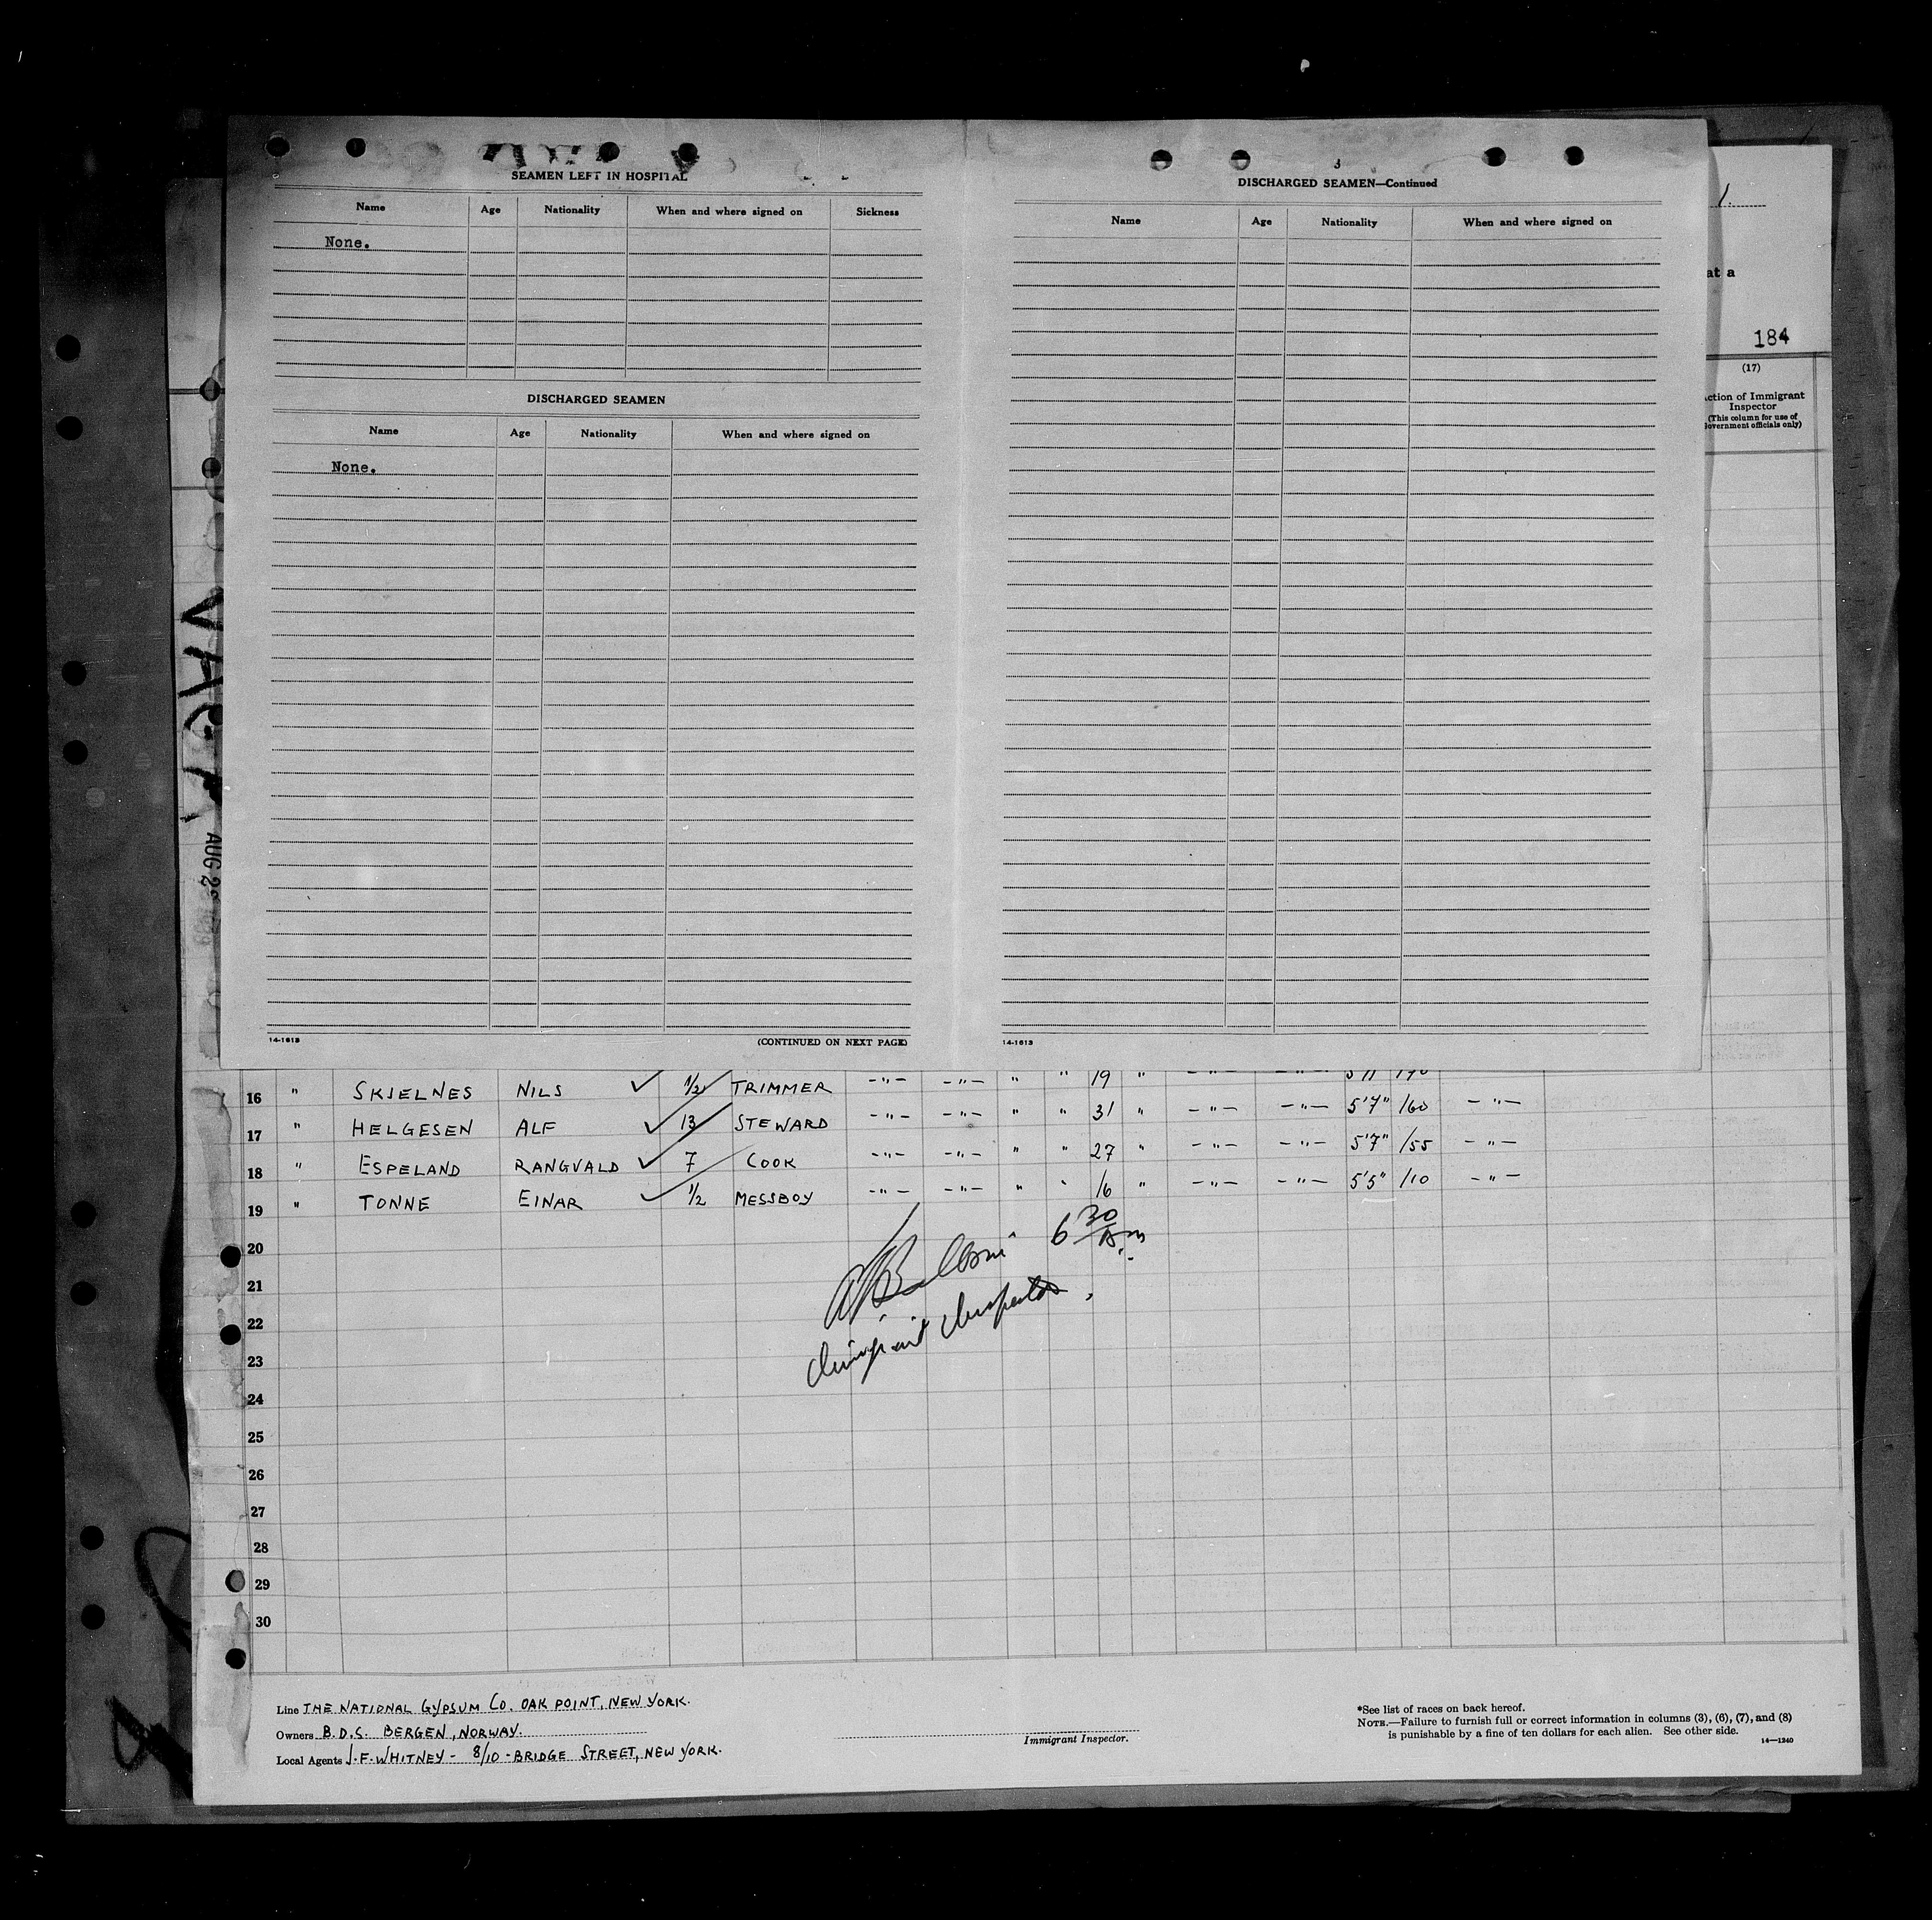 SEAMEN LEFT IN HOSPITAL
Name Age Nationality When and where signed on Sickness
None.
DISCHARGED SEAMEN
Name Age Nationality When and where signed on
None.
14-1613 (CONTINUED ON NEXT PAGE)
3
DISCHARGED SEAMEN—Continued
Name Age Nationality When and where signed on
14-1613
1.
at a
184
(17)
ction of Immigrant
Inspector
(This column for use of
Government officials only)
AUG 2
16 " SKJELNES NILS ✓ 1/2 TRIMMER -"- -"- " " 19 " -"- -"- 5'11 170
17 " HELGESEN ALF ✓ 13 STEWARD -"- -"- " " 31 " -"- -"- 5'7" 160 -"-
18 " ESPELAND RANGVALD ✓ 7 COOK -"- -"- " " 27 " -"- -"- 5'7" 155 -"-
19 " TONNE EINAR ✓ 1/2 MESSBOY -"- -"- " " 16 " -"- -"- 5'5" 110 -"-
20
21
22
23
24
25
26
27
28
29
30
6 30 Am
Immigrant Inspector.
Line THE NATIONAL GYPSUM CO. OAK POINT, NEW YORK.
Owners B.D.S. BERGEN, NORWAY.
Local Agents J.F. WHITNEY - 8/10 - BRIDGE STREET, NEW YORK.
Immigrant Inspector.
*See list of races on back hereof.
NOTE.—Failure to furnish full or correct information in columns (3), (6), (7), and (8)
is punishable by a fine of ten dollars for each alien. See other side.
14—1240